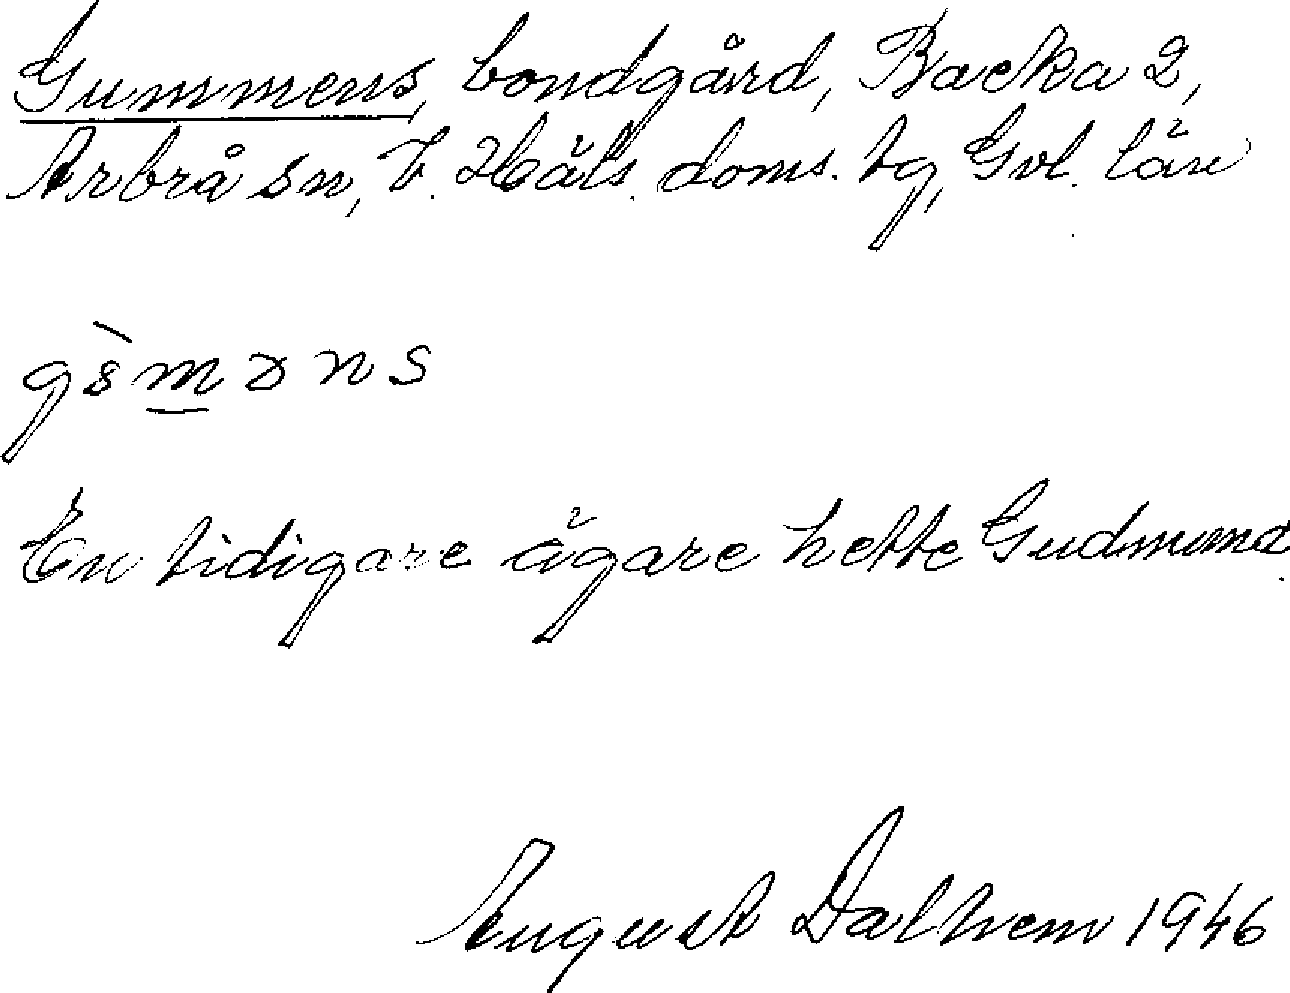 Gummens, bondgård, Backa 2,
Arbrå sn, V. Häls. doms. tg, Gvl. län
En tidigare ägare hette Gudmund.
August Dalhem 1946